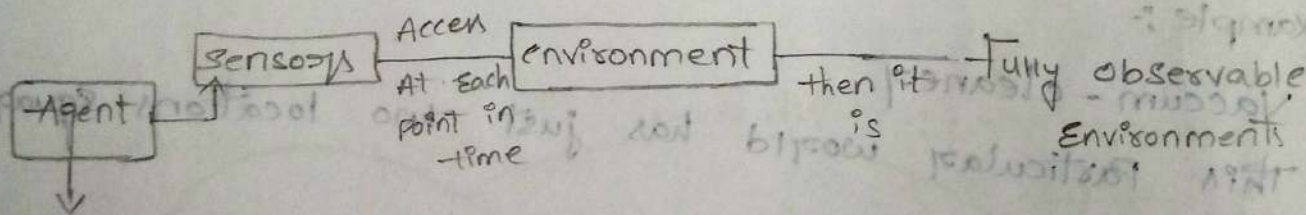 Agent
Sensors
Access
At Each
point in
time
environment
then it
is
Fully observable
Environments